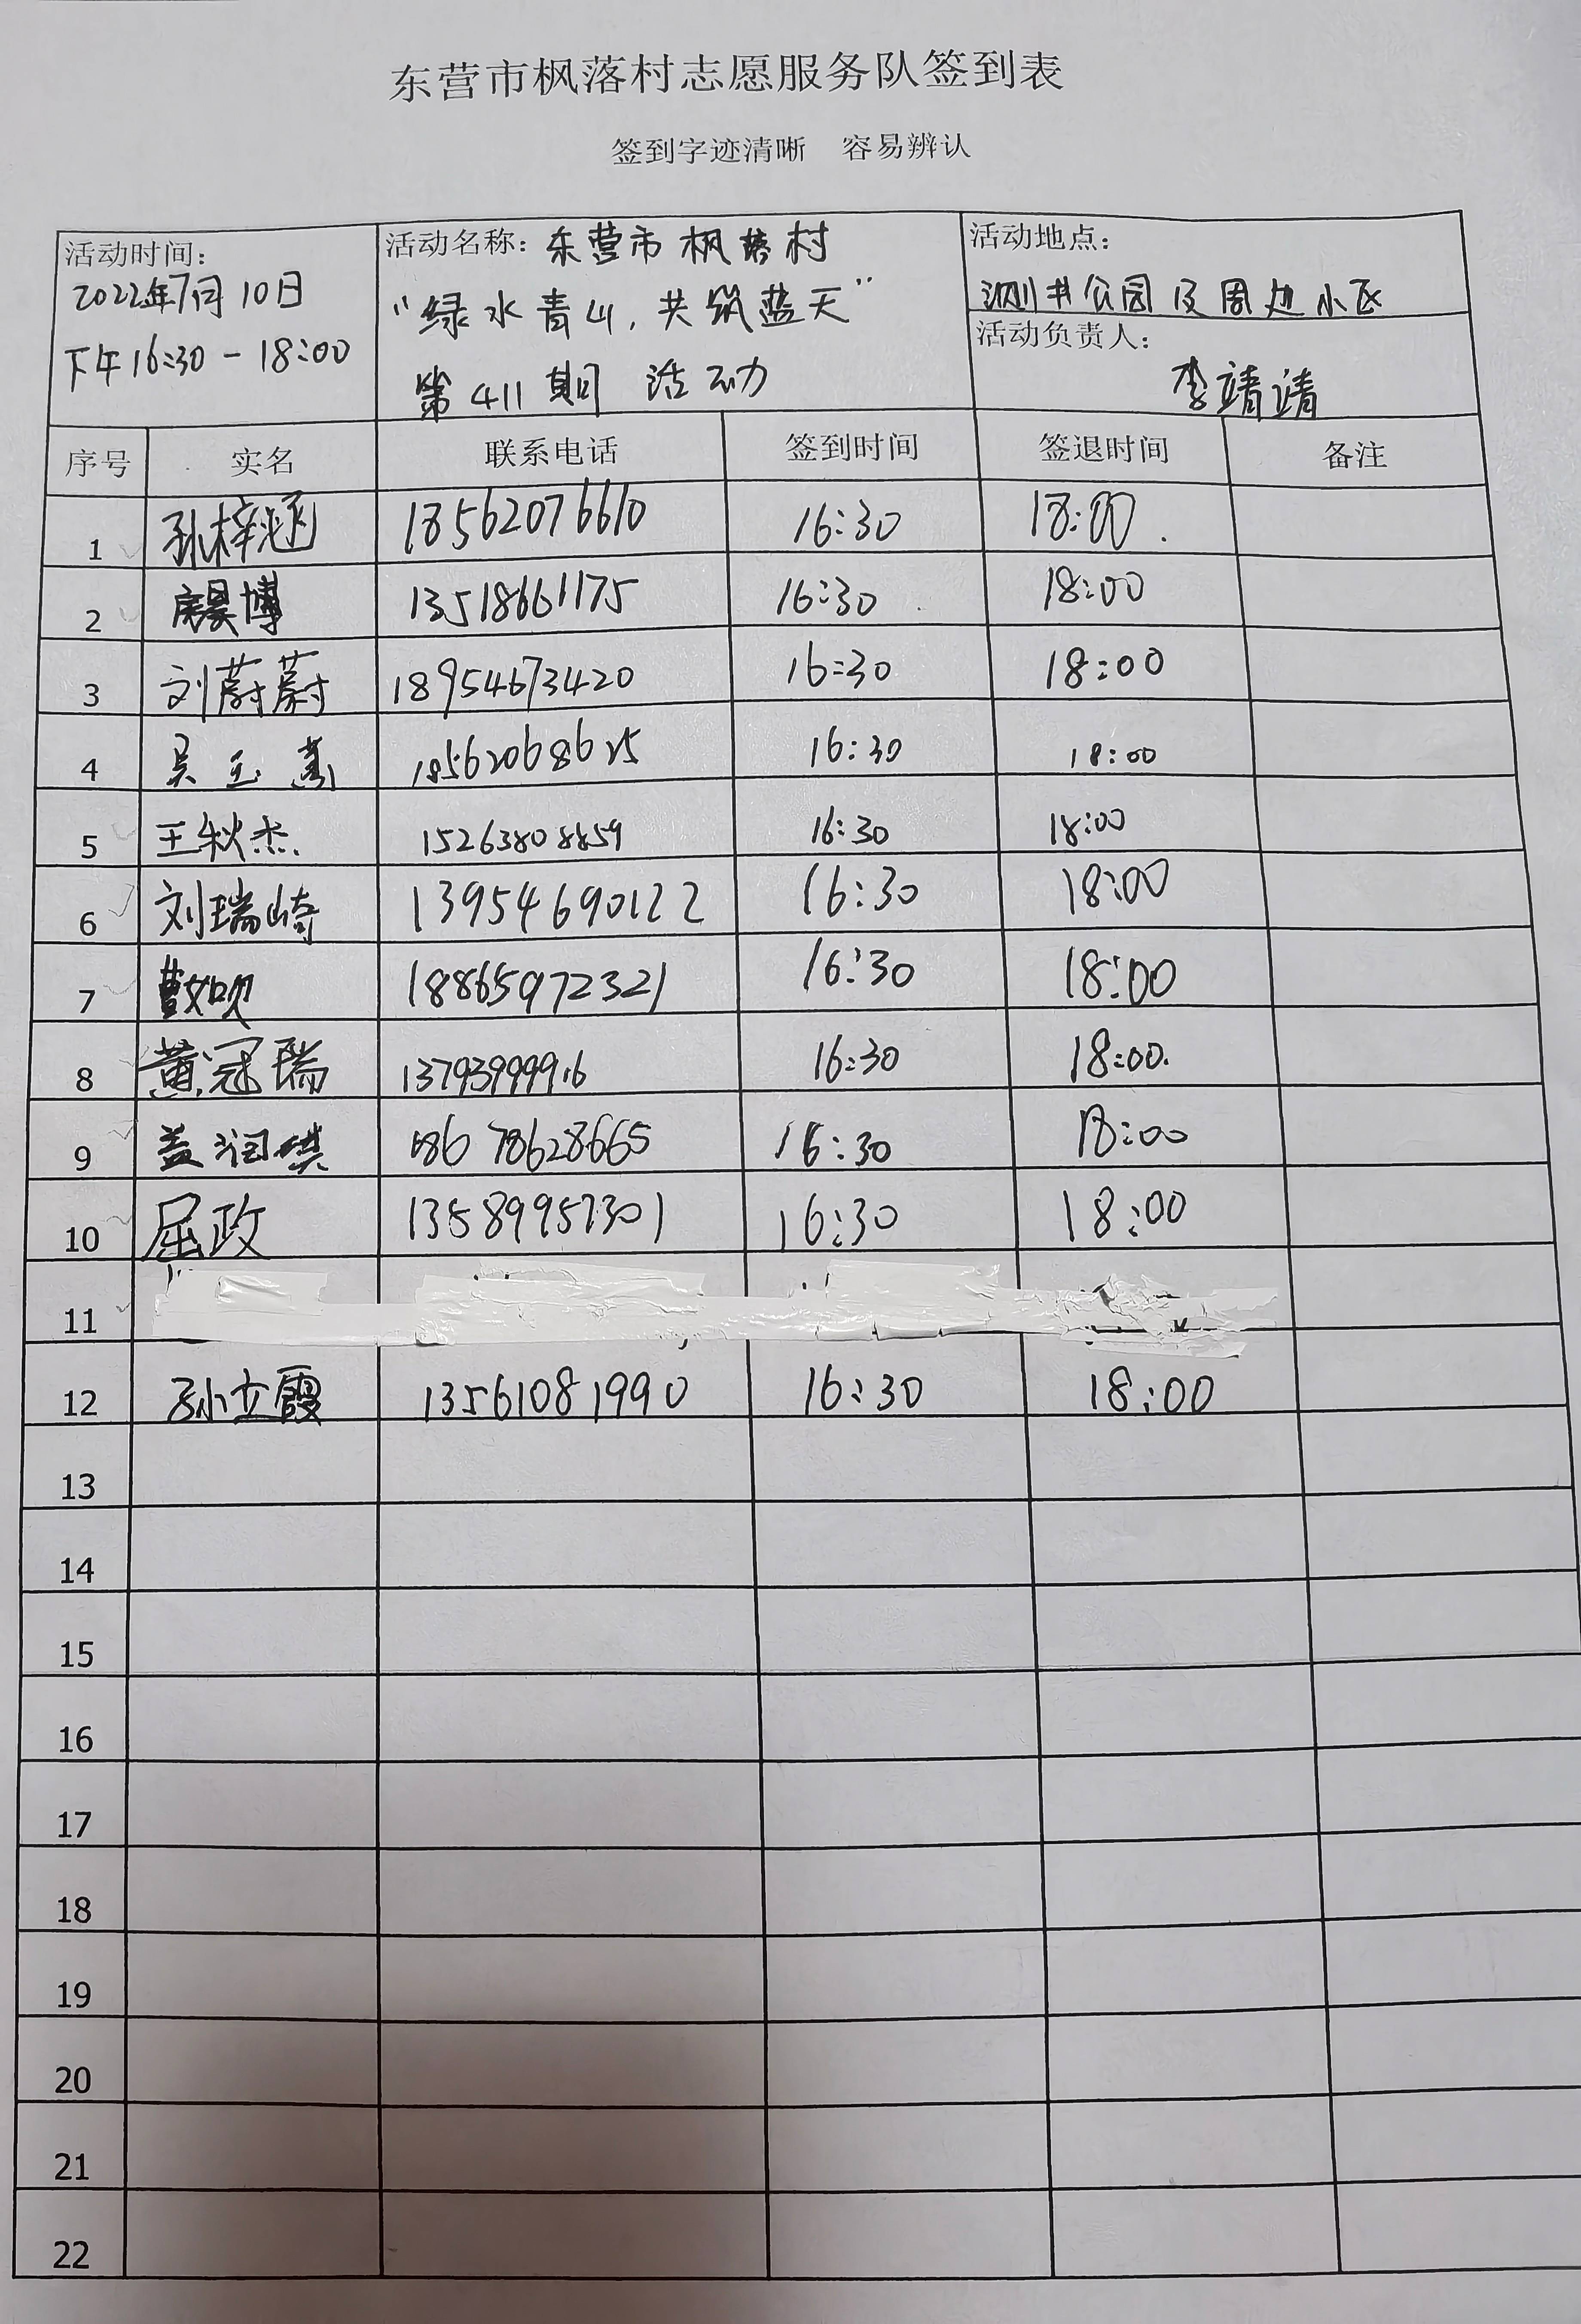 东营市枫落村志愿服务队签到表
签到字迹清晰 容易辨认
活动时间：
2022年7月10日
下午16:30-18:00
活动名称：东营市枫落村
“绿水青山，共筑蓝天”
第411期 活动
活动地点：
公园及周边小区
活动负责人：
李靖靖
序号 实名 联系电话 签到时间 签退时间 备注
1 孙梓涵 18562076610 16:30 18:00
2 房昊博 13518661175 16:30 18:00
3 刘蔚蔚 18954673420 16:30 18:00
4 吴玉 18562068625 16:30 18:00
5 王秋杰 15263808859 16:30 18:00
6 刘瑞崎 13954690122 16:30 18:00
7 曹 18865972321 16:30 18:00
8 黄冠瑞 13793999916 16:30 18:00
9 盖润琪 78628665 16:30 18:00
10 屈政 13589957301 16:30 18:00
11
12 孙立霞 13561081990 16:30 18:00
13
14
15
16
17
18
19
20
21
22